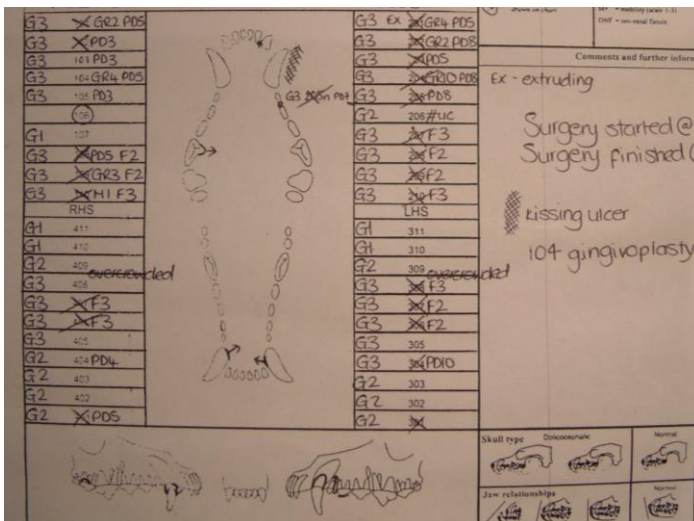 G3 GR2 PD5
G3 PD3
G3 103 PD3
G3 104 GR4 PD5
G3 105 PD3
106
G1 107
G3 PD5 F2
G3 GR3 F2
G3 M1 F3
RHS
G1 411
G1 410
G2 409 overcrowded
G3 408
G3 F3
G3 F3
G3 405
G2 404 PD4
G2 403
G2 402
G2 PD5
G3
G3 Ex GR4 PD5
G3 GR2 PD8
G3 PD5
G3 GR10 PD8
G3 PD8
G2 206 #UC
G3 F3
G3 F2
G3 F2
G3 F3
LHS
G1 311
G1 310
G2 309 overcrowded
G3 F3
G3 F2
G3 F2
G3 305
G3 PD10
G2 303
G2 302
G2
Comments and further inform
Ex - extruding
Surgery started @
Surgery finished
kissing ulcer
104 gingivoplasty
Skull type Dolicocephalic Normal
Jaw relationships Normal